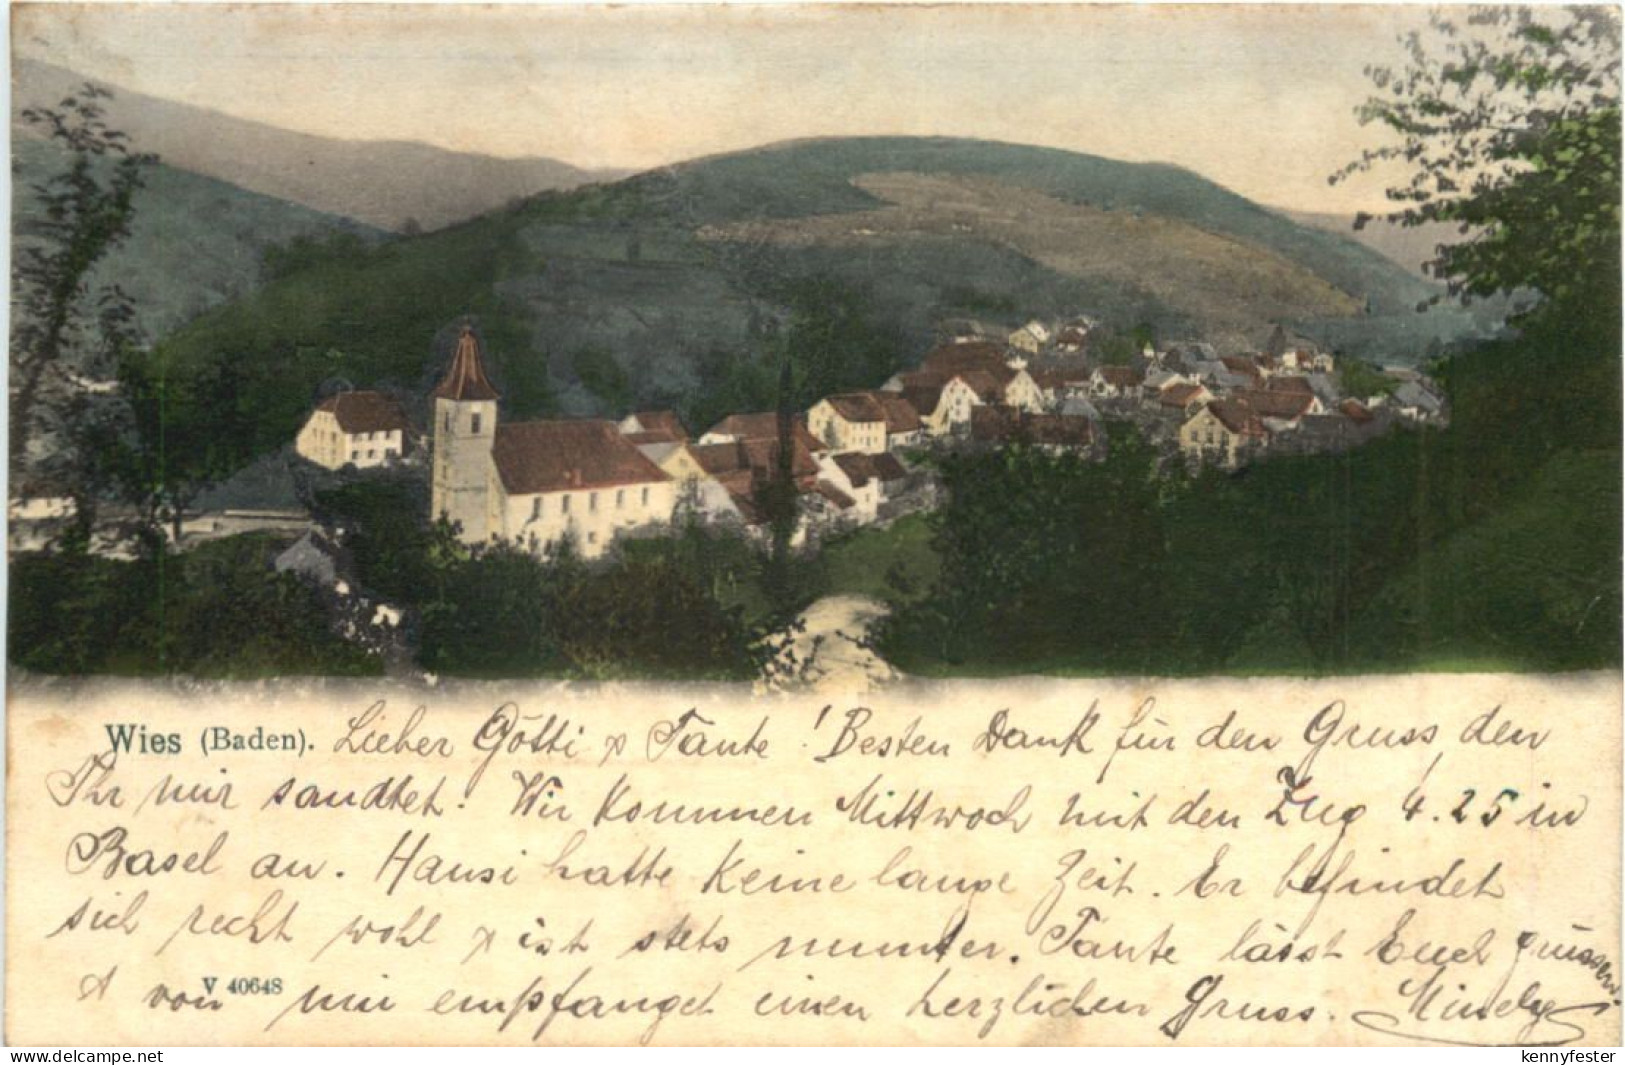 Wies (Baden). Lieber Götti & Tante! Besten Dank für den Gruss, den
Ihr mir sandtet. Wir kommen Mittwoch mit den Zug 4.25 in
Basel an. Hansi hatte keine lange Zeit. Er befindet
sich recht wohl & ist stets munter. Tante lässt Euch grüssen
& von mir empfanget einen herzlichen Gruss.
V 40648
www.delcampe.net
kennyfester